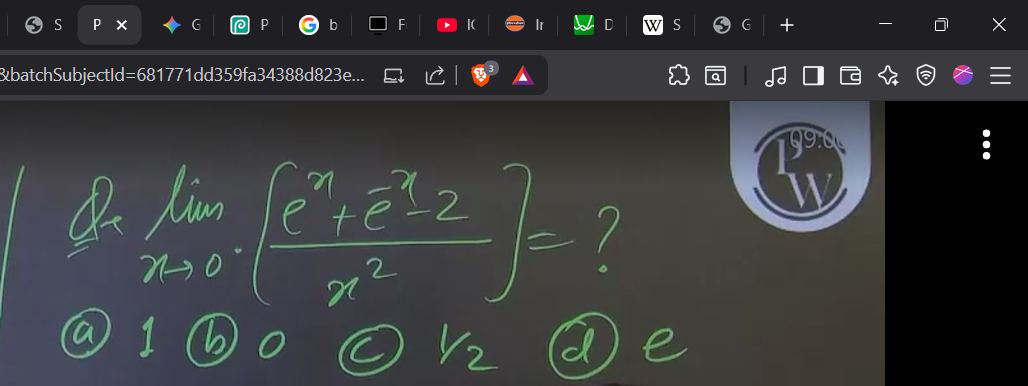 S P × G P G b F IC Ir D W S G +
&batchSubjectId=681771dd359fa34388d823e... 3
09:0
PW
Q. lim [ (e^x + e^-x - 2) / x^2 ] = ?
x→0
ⓐ 1 ⓑ 0 ⓒ 1/2 ⓓ e